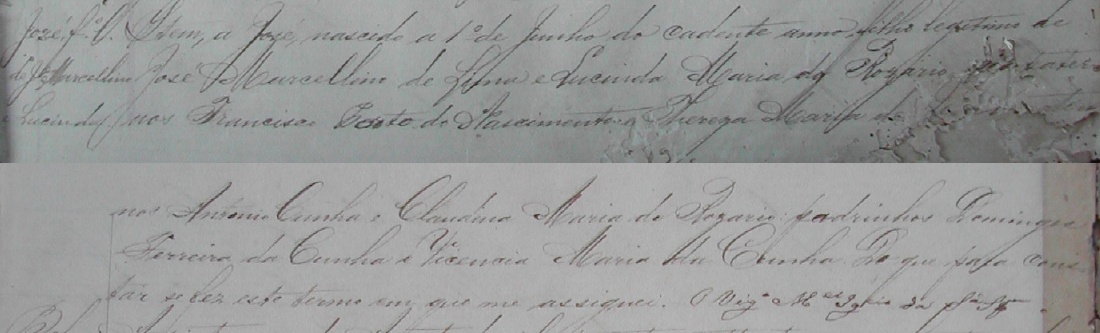 José f.º l. Idem, a José, nascido a 1º de Junho do cadente anno filho legitimo de
de José Marcellino José Marcellino de Lima e Lucinda Maria do Rozario
e Lucinda avos Francisco Porto do Nascimento e Thereza Maria de
nos Antonio Cunha e Claudina Maria do Rozario: padrinhos Domingos
Ferreira da Cunha e Vicencia Maria da Cunha. Do que para cons-
tar se fez este termo em que me assignei. O Vigº